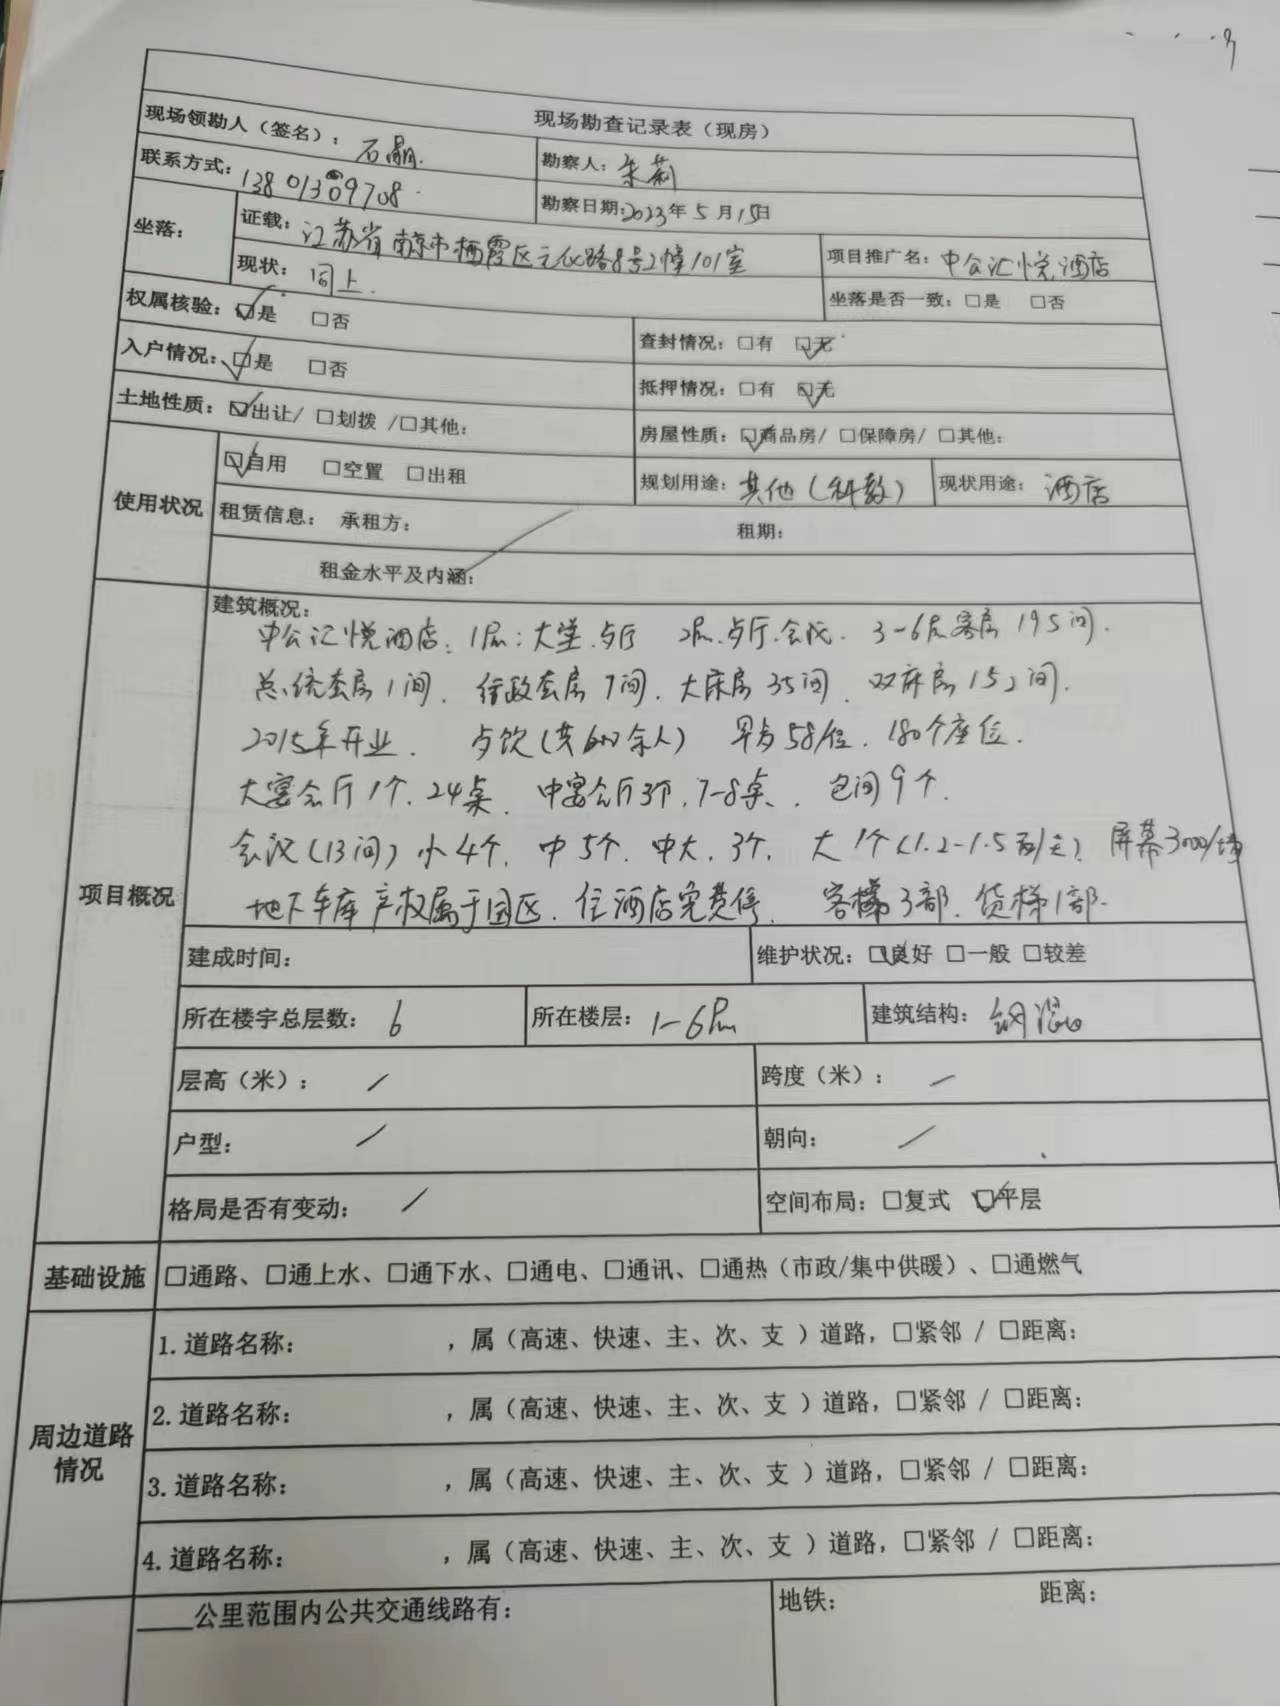 现场勘查记录表（现房）
现场领勘人（签名）： 石
勘察人：朱莉
联系方式：13801309708
勘察日期:2023年5月15日
坐落： 证载：江苏省南京市栖霞区元化路8号2幢101室
项目推广名：中公汇悦酒店
现状：同上
坐落是否一致：□是 □否
权属核验：☑是 □否
查封情况：□有 ☑无
入户情况：☑是 □否
抵押情况：□有 ☑无
土地性质：☑出让/ □划拨 /□其他：
房屋性质：☑商品房/ □保障房/ □其他：
使用状况 ☑自用 □空置 □出租
规划用途：其他（科教） 现状用途：酒店
租赁信息： 承租方： 租期：
租金水平及内涵：
项目概况 建筑概况：
中公汇悦酒店. 1层：大堂.歺厅 2层.歺厅.会议. 3-6层客房195间.
总统套房1间. 行政套房7间. 大床房35间. 双床房152间.
2015年开业. 歺饮(共600余人) 早歺58/位. 180个座位.
大宴会厅1个. 24桌. 中宴会厅3个, 7-8桌. 包间9个.
会议(13间) 小4个. 中5个. 中大.3个. 大1个(1.2-1.5万/天). 屏幕3000/
地下车库产权属于园区. 住酒店免费停. 客梯3部. 货梯1部.
建成时间： 维护状况：☑良好 □一般 □较差
所在楼宇总层数：6 所在楼层：1-6层 建筑结构：钢混
层高（米）： / 跨度（米）： /
户型： / 朝向： /
格局是否有变动： / 空间布局：□复式 ☑平层
基础设施 □通路、□通上水、□通下水、□通电、□通讯、□通热（市政/集中供暖）、□通燃气
周边道路情况 1.道路名称： ，属（高速、快速、主、次、支 ）道路，□紧邻 / □距离：
2.道路名称： ，属（高速、快速、主、次、支 ）道路，□紧邻 / □距离：
3.道路名称： ，属（高速、快速、主、次、支 ）道路，□紧邻 / □距离：
4.道路名称： ，属（高速、快速、主、次、支 ）道路，□紧邻 / □距离：
____公里范围内公共交通线路有： 地铁： 距离：